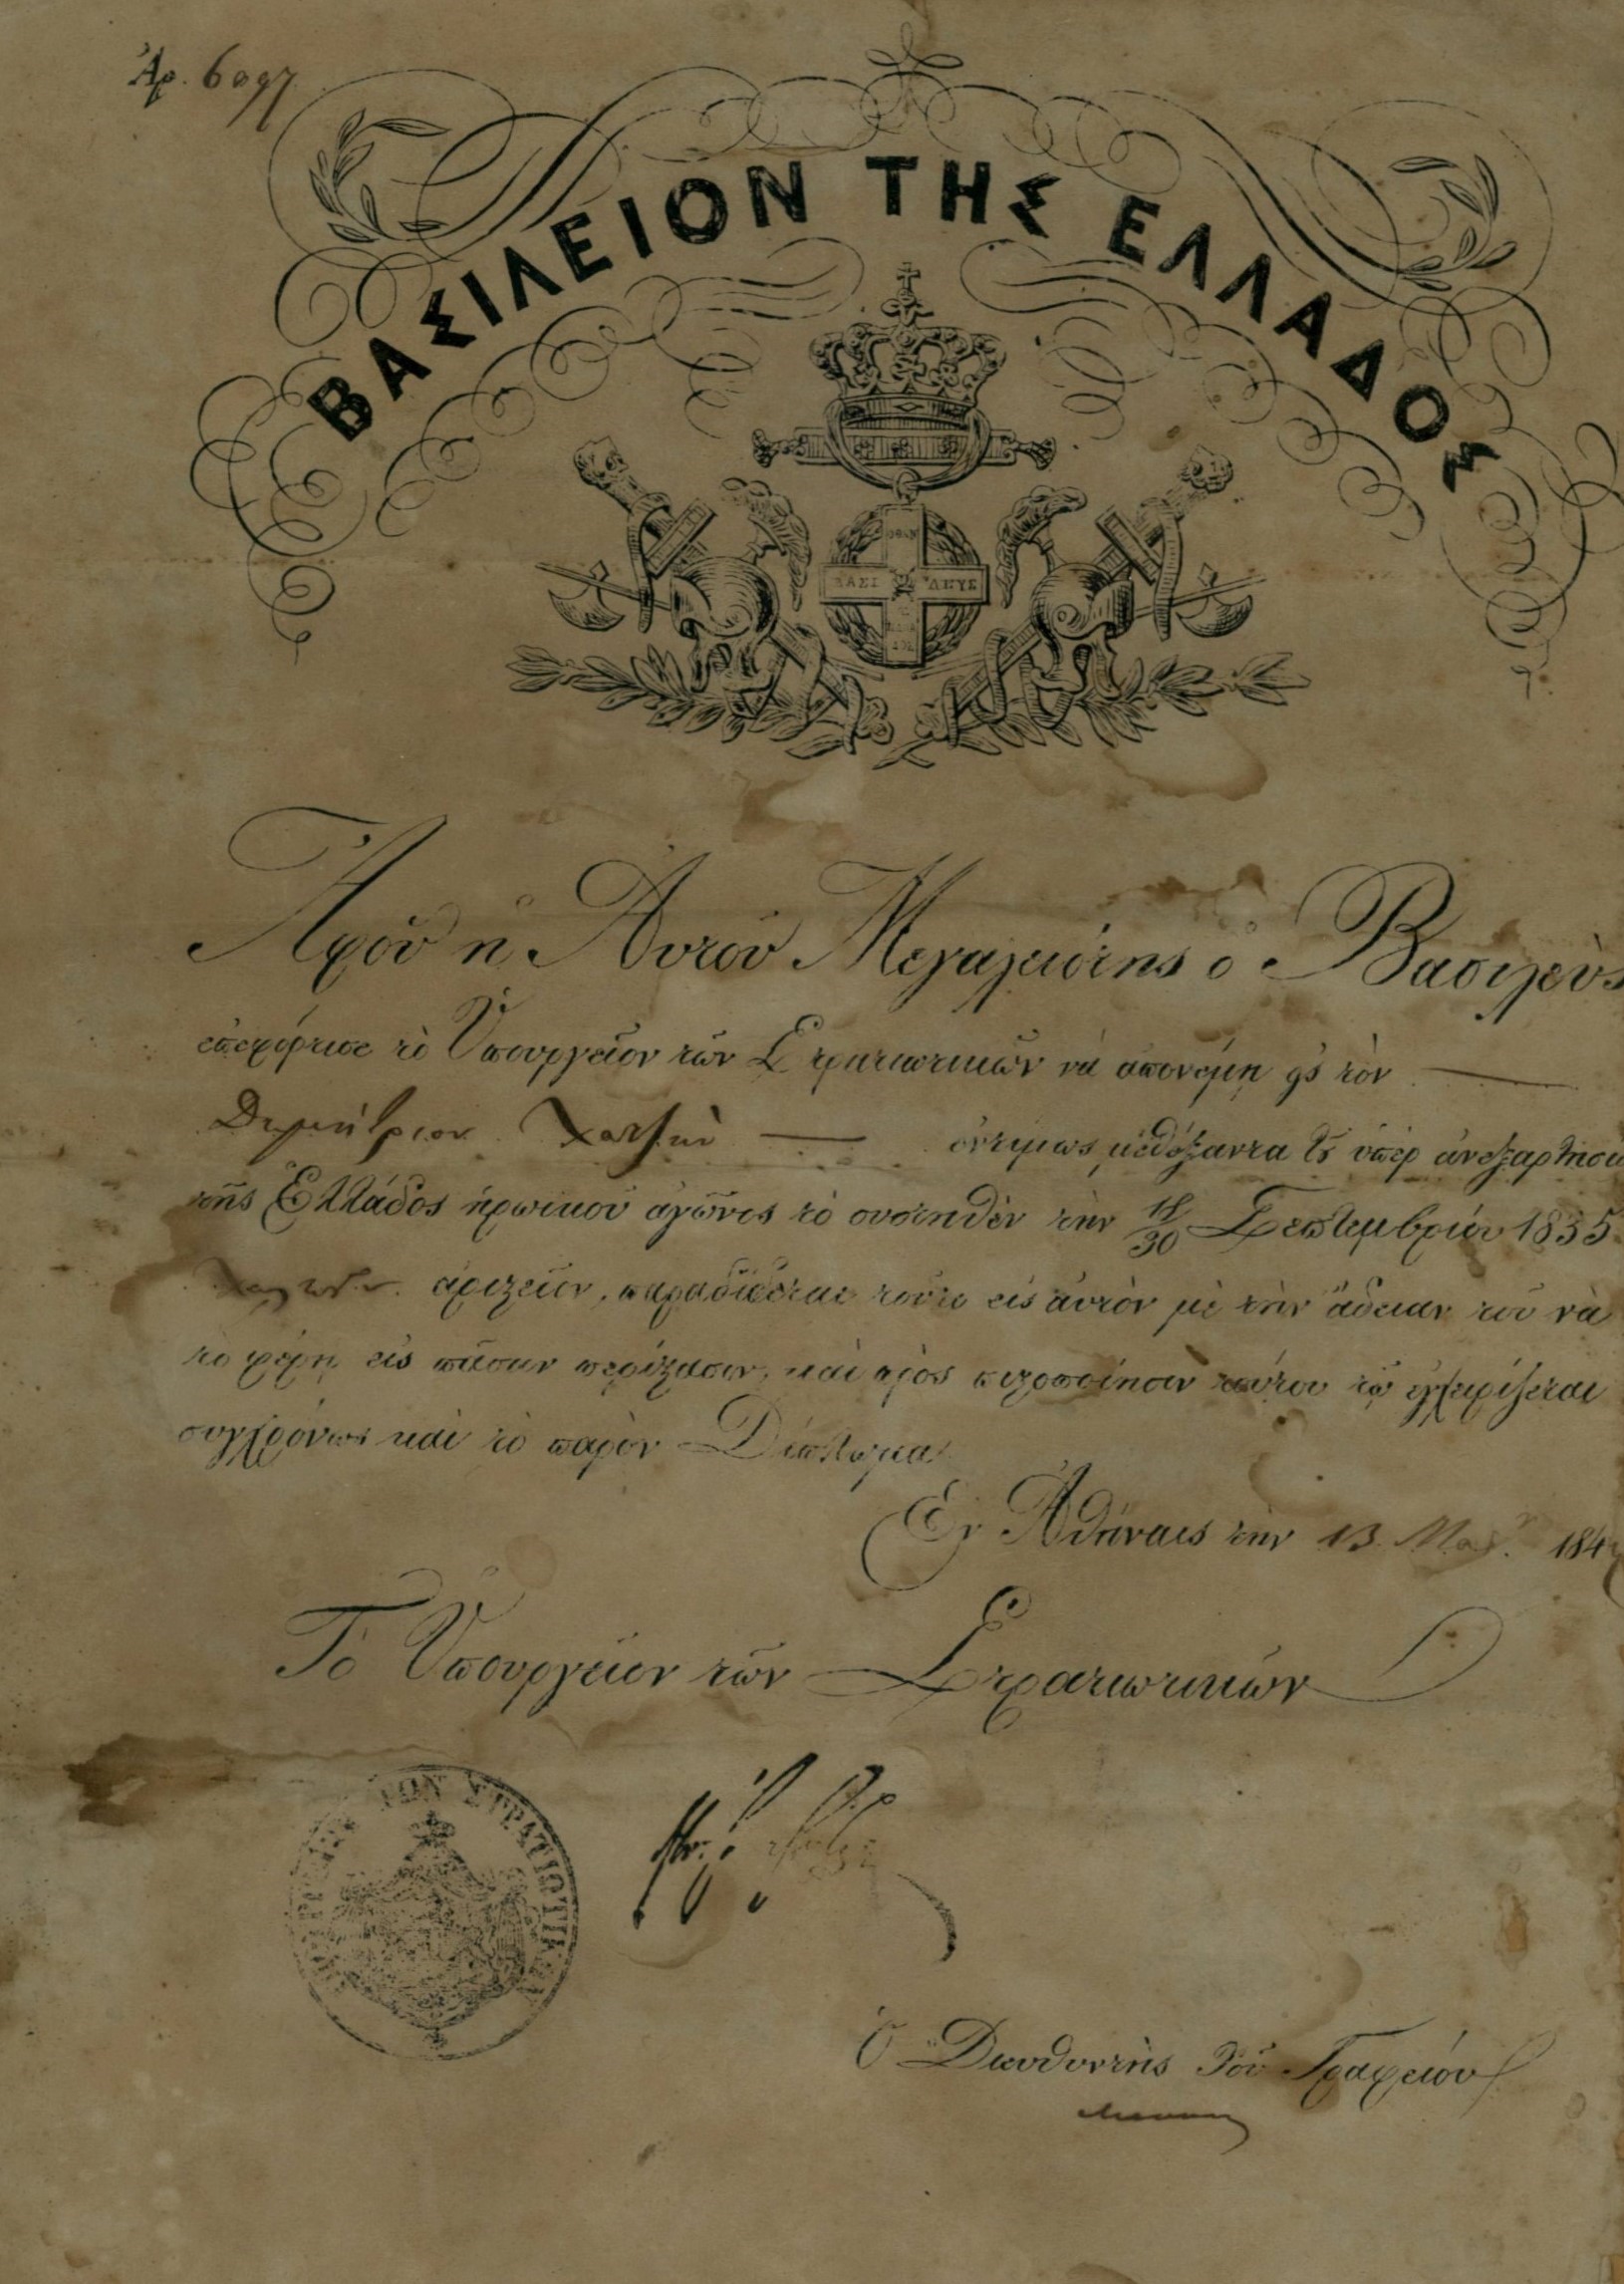 Ἀρ. 6097
ΒΑΣΙΛΕΙΟΝ ΤΗΣ ΕΛΛΑΔΟΣ
ΟΘΩΝ
ΒΑΣΙ ΛΕΥΣ
Ἀφοῦ ἡ Αὐτοῦ Μεγαλειότης ὁ Βασιλεὺς
ἐπεφόρτισε τὸ Ὑπουργεῖον τῶν Στρατιωτικῶν νὰ ἀπονέμῃ εἰς τὸν
Δημήτριον Χατζῆν ἐντίμως μεθέξαντα τοῦ ὑπὲρ ἀνεξαρτησία
τῆς Ἑλλάδος ἡρωικοῦ ἀγῶνος τὸ συστηθὲν τὴν 18/30 Σεπτεμβρίου 1835
ἀριστεῖον, παραδίδεται τοῦτο εἰς αὐτὸν μὲ τὴν ἄδειαν τοῦ νὰ
τὸ φέρῃ εἰς πᾶσαν περίστασιν, καὶ πρὸς πιστοποίησιν τούτου τῷ ἐγχειρίζεται
συγχρόνως καὶ τὸ παρὸν Δίπλωμα.
Ἐν Ἀθήναις τὴν 13 184
Τὸ Ὑπουργεῖον τῶν Στρατιωτικῶν
ΤΩΝ ΣΤΡΑΤΙΩΤΙΚΩΝ
Ὁ Διευθυντὴς τοῦ Γραφείου